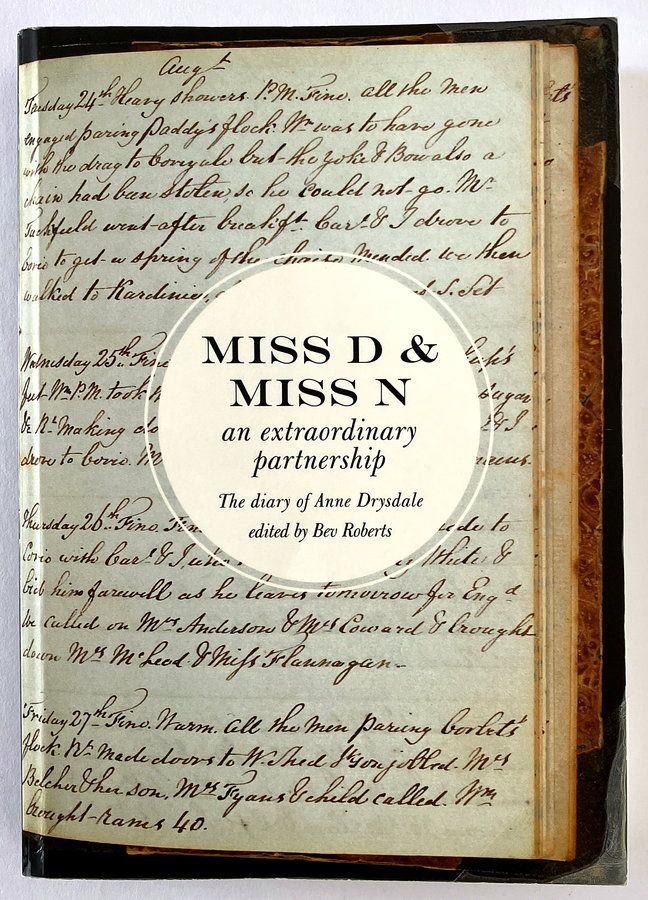 Augt
Tuesday 24th Heavy showers P.M. Fine. all the men
engaged paring Paddy's flock. Wm was to have gone
with the dray to but the Yoke & Bow also a
chain had been stolen, so he could not go. Mr
went after breakfst. Carl. & I drove to
Corio to get a spring of the chaise mended. We then
walked to Kardinia, S. Set
Wednesday 25th Fine
but Wm P.M. took sugar
& Nl making 24 I
drove to Corio. M
Thursday 26th Fine. to
Corio with Carl. & I White &
bid him farewell as he leaves tomorrow for Engd
We called on Mrs Anderson & Mrs Coward & brought
down Mrs McLeod & Miss Flannagan
Friday 27th Fine. Warm. All the men paring
flock. Nl made doors to W. Shed & Mrs
Belcher & her son, Mrs Fyans & child called. Wm
brought rams 40.
MISS D &
MISS N
an extraordinary
partnership
The diary of Anne Drysdale
edited by Bev Roberts